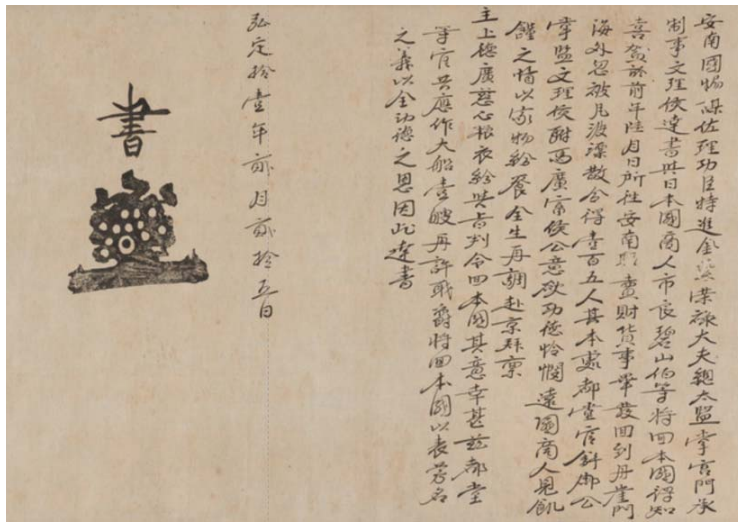 安南國協謀佐理功臣特進金紫榮祿大夫總太監掌宮門承
制事文理侯達書與日本國商人市良碧山伯等將回本國得知
喜盈訴前年陸月日所往安南販賣財貨事畢發回到丹崖門
海外忽被凡波漂散今得壹百五人其本處都堂官舒郡公
掌監文理侯附馬廣富侯公意欲功德怜憫遠國商人見飢
饉之情以家物給養全生再調赴京拜稟
主上德廣慈心根衣給其旨判令回本國其意幸甚茲都堂
等官共應作大船壹艘再許職爵將回本國以表芳名
之義以全功德之恩因此達書
弘定拾壹年貳月貳拾五日
書